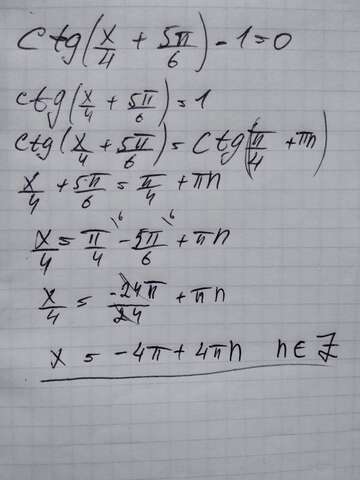 ctg(x/4 + 5π/6) - 1 = 0
ctg(x/4 + 5π/6) = 1
ctg(x/4 + 5π/6) = ctg(π/4 + πn)
x/4 + 5π/6 = π/4 + πn
x/4 = π/4 \6 - 5π/6 \6 + πn
x/4 = -24π/24 + πn
x = -4π + 4πn n ∈ Z